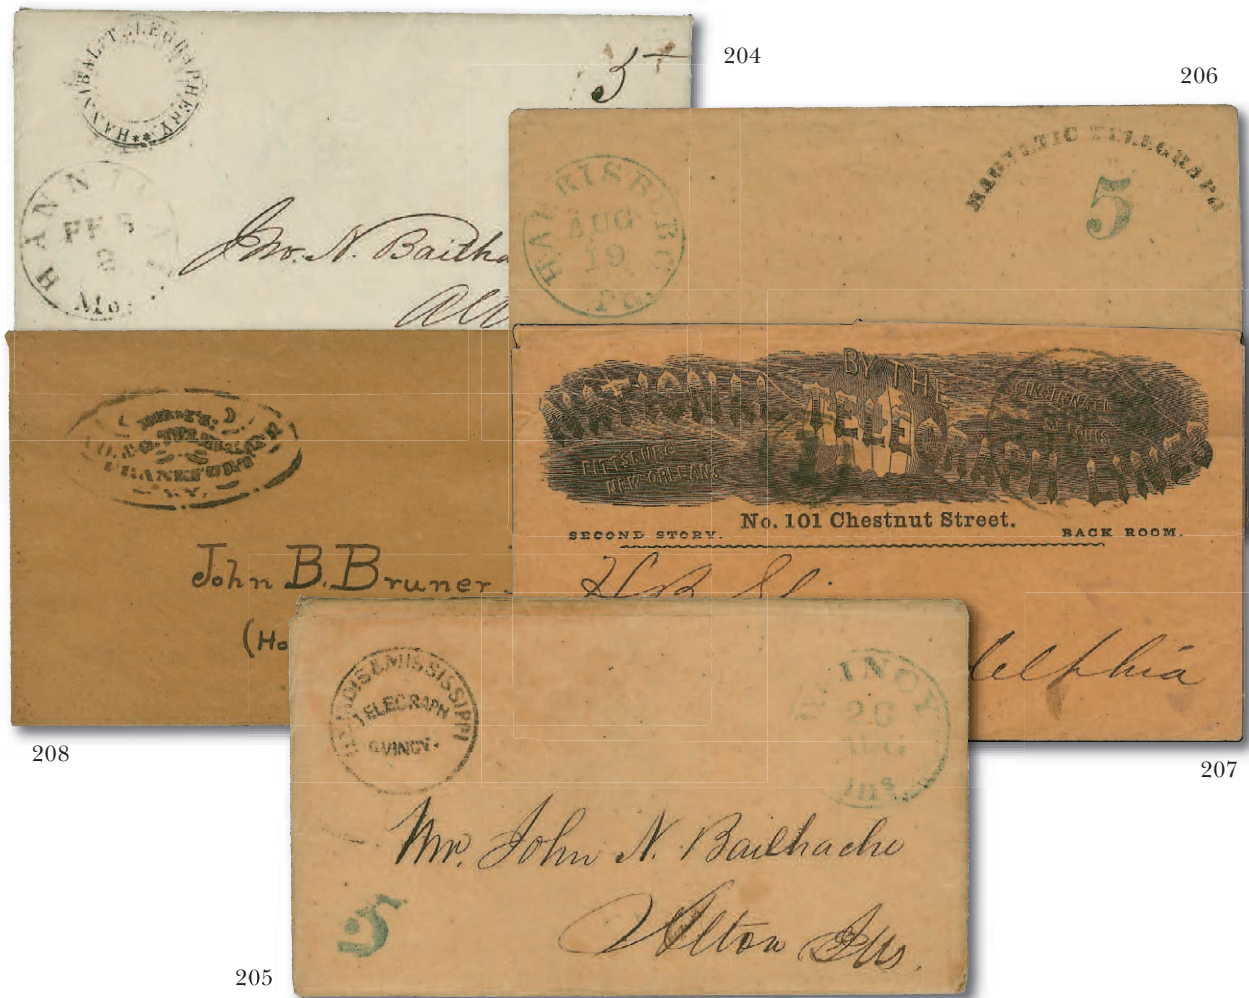 204
206
HANNIBAL TELEGRAPHERY.
5
HANNIBAL
FEB
2
Mo.
Jno. N. Bailha
Al
HARRISBURG
AUG
19
Pa.
MAGNETIC TELEGRAPH
5
TELEGR
FRANKFORT
KY.
John B. Bruner
(Ho
BY THE
NATIONAL TELEGRAPH LINES
PITTSBURG
NEW ORLEANS
CINCINNATI
ST LOUIS
No. 101 Chestnut Street.
SECOND STORY.
BACK ROOM.
H.B.
delphia
208
207
ILLINOIS & MISSISSIPPI
TELEGRAPH
QUINCY.
QUINCY
26
AUG
Ills.
Mr. John N. Bailhache
Alton Ills.
5
205